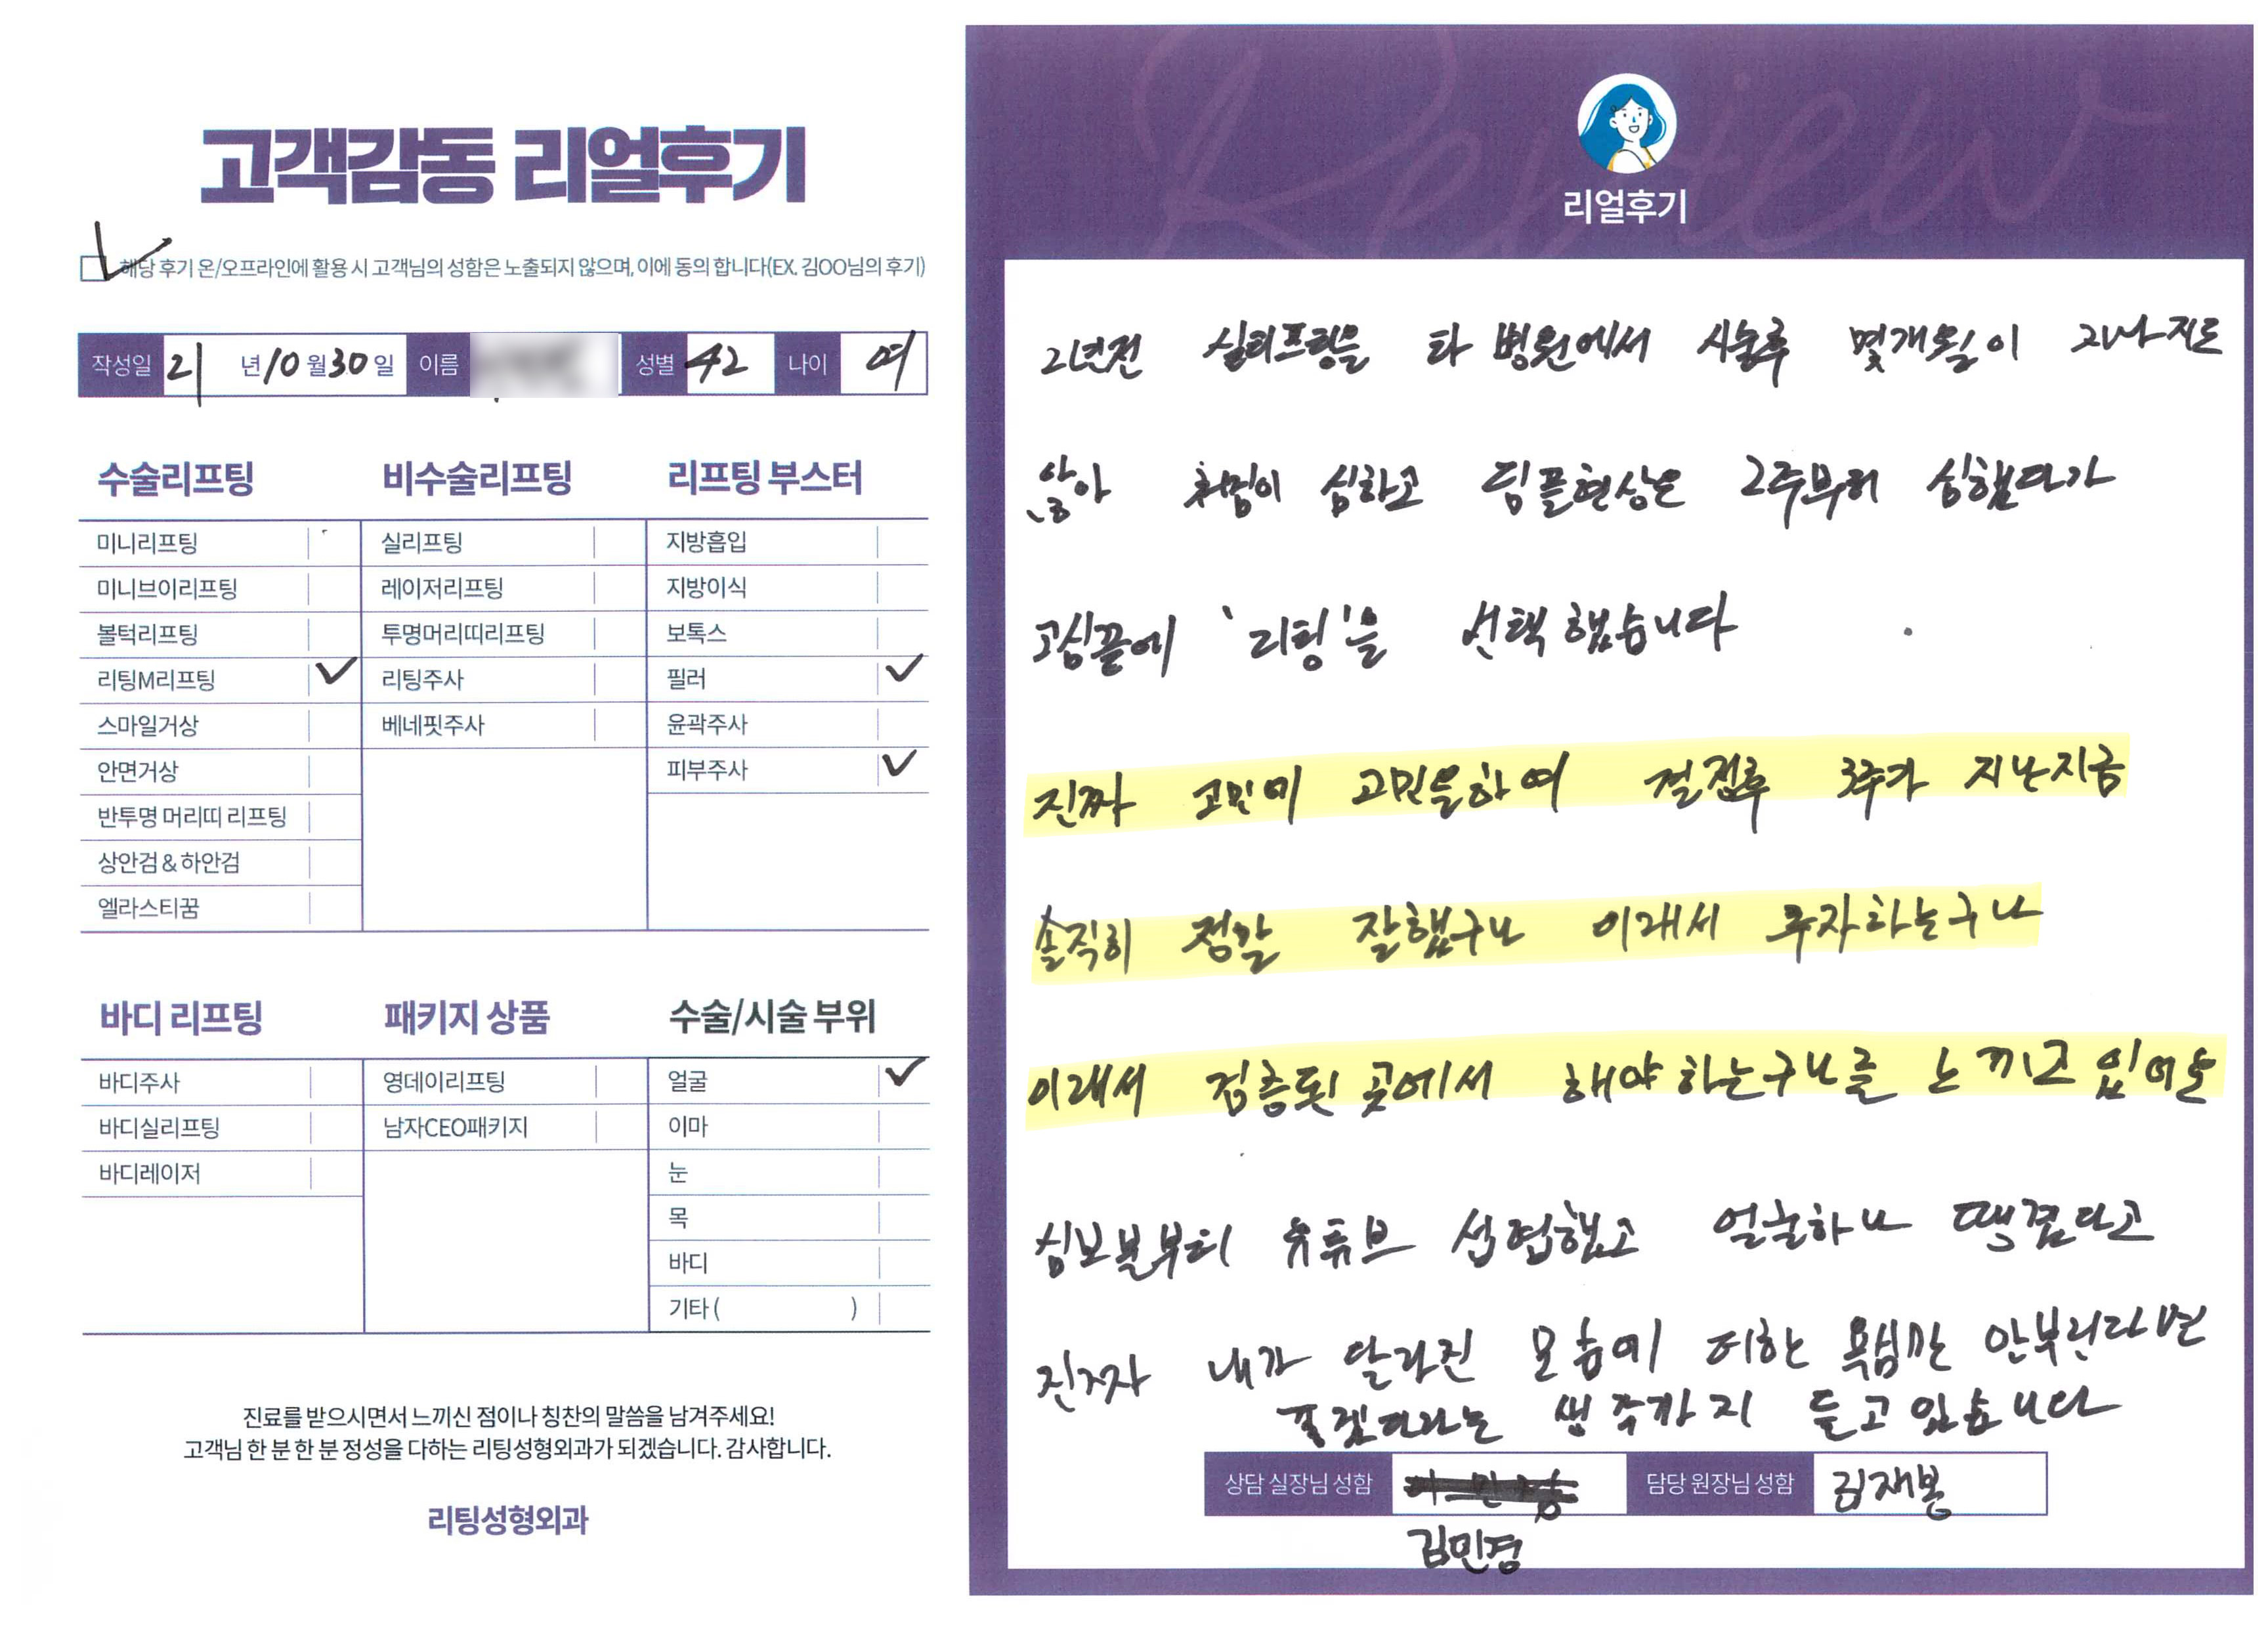 고객감동 리얼후기
해당 후기 온/오프라인에 활용 시 고객님의 성함은 노출되지 않으며, 이에 동의 합니다(EX. 김OO님의 후기)
작성일 21 년 10 월 30 일 이름 성별 42 나이 여
수술리프팅
미니리프팅
미니브이리프팅
볼턱리프팅
리팅M리프팅 ✓
스마일거상
안면거상
반투명 머리띠 리프팅
상안검 & 하안검
엘라스티꿈
비수술리프팅
실리프팅
레이저리프팅
투명머리띠리프팅
리팅주사
베네핏주사
리프팅 부스터
지방흡입
지방이식
보톡스
필러 ✓
윤곽주사
피부주사 ✓
바디 리프팅
바디주사
바디실리프팅
바디레이저
패키지 상품
영데이리프팅
남자CEO패키지
수술/시술 부위
얼굴 ✓
이마
눈
목
바디
기타 ( )
진료를 받으시면서 느끼신 점이나 칭찬의 말씀을 남겨주세요!
고객님 한 분 한 분 정성을 다하는 리팅성형외과가 되겠습니다. 감사합니다.
리팅성형외과
Review
리얼후기
2년전 실리프팅을 타 병원에서 시술후 몇개월이 지나지도
않아 처짐이 심하고 딤플현상은 2주부터 심했다가
고심끝에 '리팅'을 선택했습니다
진짜 고민에 고민을하여 결정후 3주가 지난지금
솔직히 정말 잘했구나 이래서 투자하는구나
이래서 검증된 곳에서 해야하는구나를 느끼고 있어요
유튜브 섭렵했고 얼굴하나 땡겼다고
진짜 내가 달라진 모습에 더한 욕심만 안부린다면
생각까지 들고있습니다
상담 실장님 성함 담당 원장님 성함 김재봉
김민경